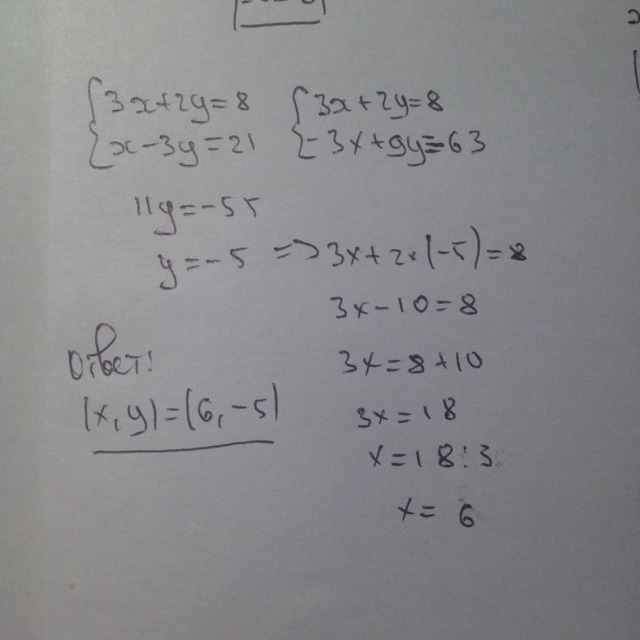 3x+2y=8 3x+2y=8
x-3y=21 -3x+9y=63
11y=-55
y=-5 => 3x+2×(-5)=8
3x-10=8
3x=8+10
3x=18
x=18:3
x=6
Ответ:
(x,y)=(6,-5)